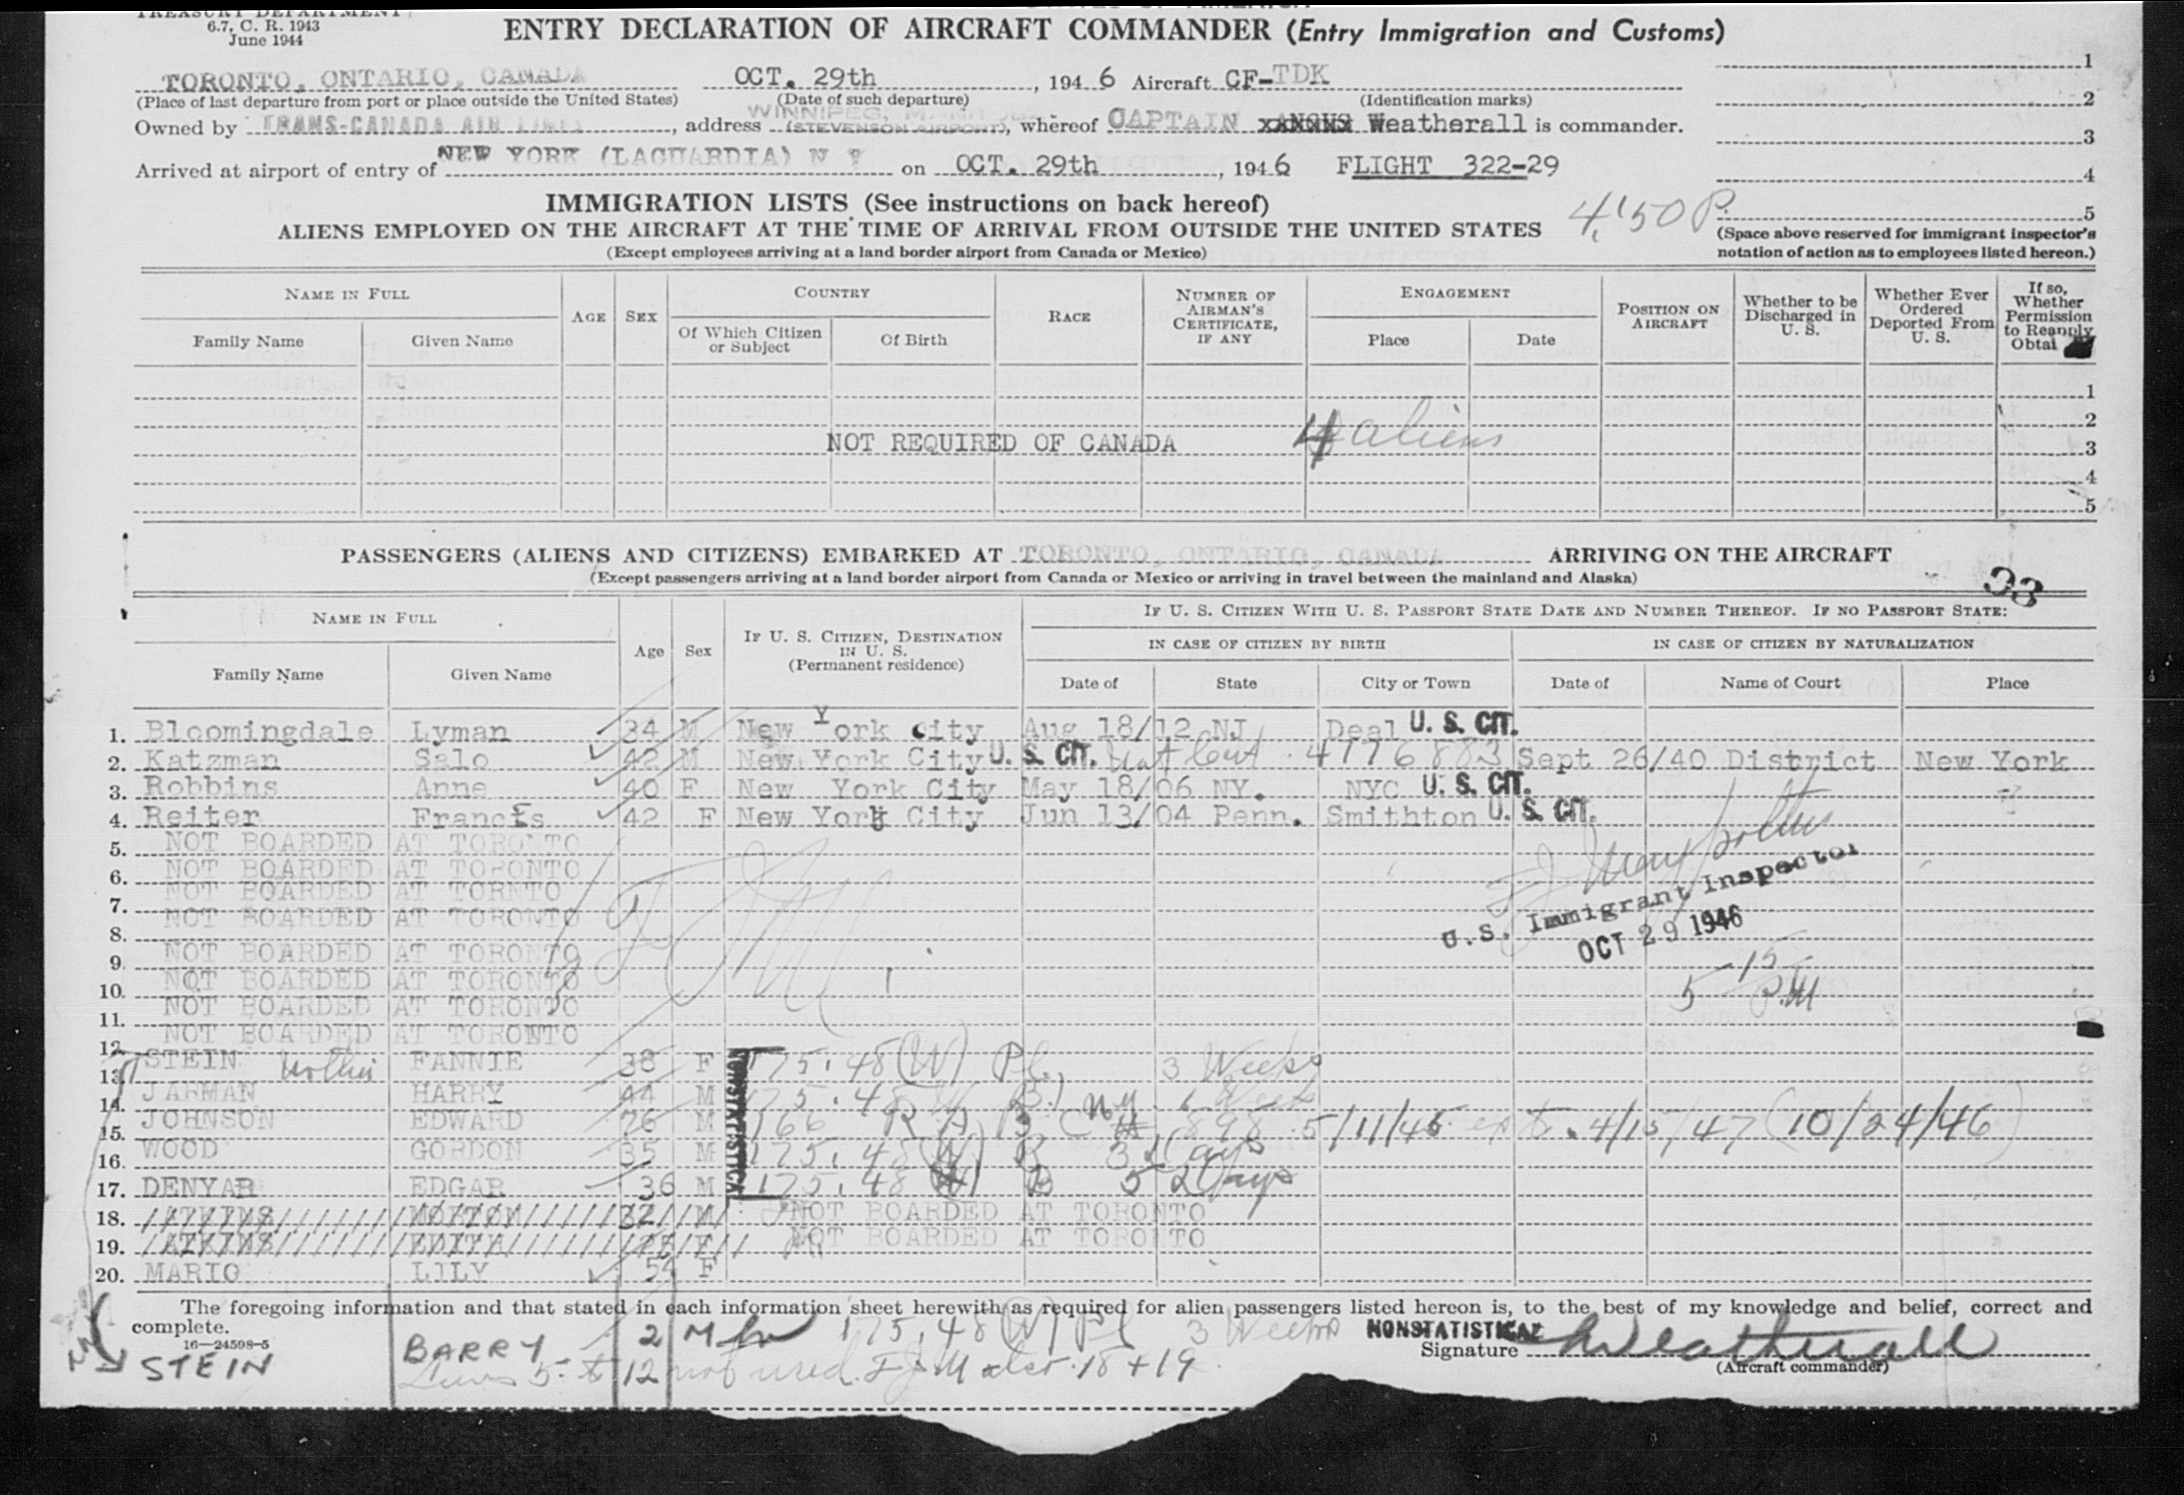 TREASURY DEPARTMENT
6.7, C. R. 1943
June 1944
ENTRY DECLARATION OF AIRCRAFT COMMANDER (Entry Immigration and Customs)
TORONTO, ONTARIO, CANADA OCT. 29th , 194 6 Aircraft CF-TDK 1
(Place of last departure from port or place outside the United States) (Date of such departure) (Identification marks) 2
Owned by TRANS-CANADA AIR LINES , address WINNIPEG, (STEVENSON AIRPORT), whereof CAPTAIN Weatherall is commander. 3
Arrived at airport of entry of NEW YORK (LAGUARDIA) N Y on OCT. 29th , 194 6 FLIGHT 322-29 4
IMMIGRATION LISTS (See instructions on back hereof) 4:50 P. 5
ALIENS EMPLOYED ON THE AIRCRAFT AT THE TIME OF ARRIVAL FROM OUTSIDE THE UNITED STATES
(Space above reserved for immigrant inspector's
(Except employees arriving at a land border airport from Canada or Mexico) notation of action as to employees listed hereon.)
NAME IN FULL AGE SEX COUNTRY RACE NUMBER OF AIRMAN'S CERTIFICATE, IF ANY ENGAGEMENT POSITION ON AIRCRAFT Whether to be Discharged in U. S. Whether Ever Ordered Deported From U. S. If so, Whether Permission to Reapply Obtai
Family Name Given Name Of Which Citizen or Subject Of Birth Place Date
1
2
NOT REQUIRED OF CANADA 4 aliens 3
4
5
PASSENGERS (ALIENS AND CITIZENS) EMBARKED AT TORONTO, ONTARIO, CANADA ARRIVING ON THE AIRCRAFT
(Except passengers arriving at a land border airport from Canada or Mexico or arriving in travel between the mainland and Alaska) 33
NAME IN FULL Age Sex IF U. S. CITIZEN, DESTINATION IN U. S. (Permanent residence) IF U. S. CITIZEN WITH U. S. PASSPORT STATE DATE AND NUMBER THEREOF. IF NO PASSPORT STATE:
IN CASE OF CITIZEN BY BIRTH IN CASE OF CITIZEN BY NATURALIZATION
Family Name Given Name Date of State City or Town Date of Name of Court Place
1. Bloomingdale Lyman 34 M New York City Aug 18/12 NJ Deal U. S. CIT.
2. Katzman Salo 42 M New York City U. S. CIT. Nat Cert 4776883 Sept 26/40 District New York
3. Robbins Anne 40 F New York City May 18/06 NY. NYC U. S. CIT.
4. Reiter Frances 42 F New York City Jun 13/04 Penn. Smithton U. S. CIT.
5. NOT BOARDED AT TORONTO
6. NOT BOARDED AT TORONTO
7. NOT BOARDED AT TORNTO
8. NOT BOARDED AT TORONTO
9. NOT BOARDED AT TORONTO
10. NOT BOARDED AT TORONTO
11. NOT BOARDED AT TORONTO
12. NOT BOARDED AT TORONTO
U.S. Immigrant Inspector
OCT 29 1946
5 15 P.M
13. STEIN Mother FANNIE 38 F 175.48 (W) Pl. 3 Weeks
14. JARMAN HARRY 44 M 175.48 W B. NY
15. JOHNSON EDWARD 26 M 166 R A B C # 898 5/11/45 ext. 4/15/47 (10/24/46)
16. WOOD GORDON 35 M 175.48 (W) B 3 Days
17. DENYAR EDGAR 36 M 175.48 (W) B 5 2 Days
NONSTATISTICAL
18. ATKINS MORTON 32 M NOT BOARDED AT TORONTO
19. ATKINS EDITH F NOT BOARDED AT TORONTO
20. MARIO LILY 54 F
The foregoing information and that stated in each information sheet herewith as required for alien passengers listed hereon is, to the best of my knowledge and belief, correct and
complete.
16—24598-5
STEIN BARRY 2 M 175.48 (W) Pl 3 Weeks NONSTATISTICAL Signature Weatherall
(Aircraft commander)
Lines 5 to 12 not used. FJM also 18 + 19